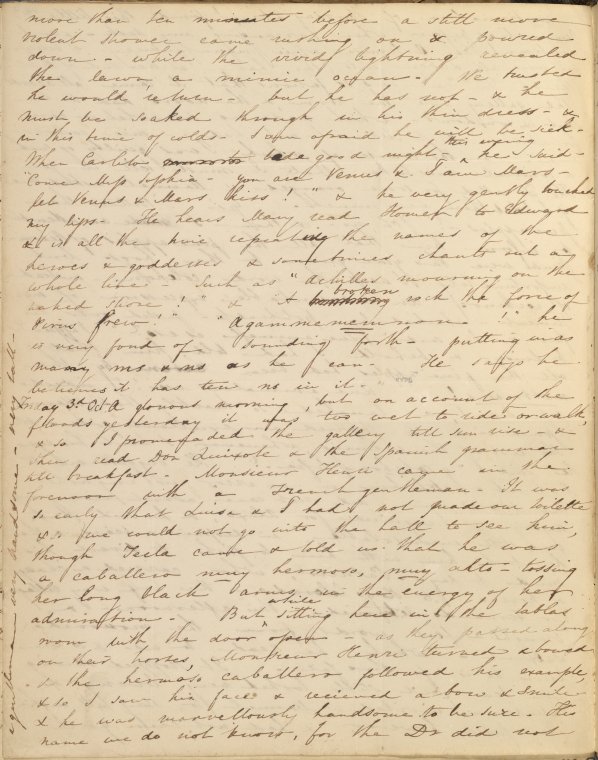 more than ten minutes before a still more
violent shower came rushing on & poured
down - while the vivid lightning revealed
the lawn a mimic ocean - We trusted
he would return - but he has not - & he
must be soaked through in his thin dress - &
in this time of colds - I am afraid he will be sick -
When Carlito bade good night this evening he said -
"Come Miss Sophia - you are Venus & I am Mars -
let Venus & Mars kiss!" & he very gently touched
my lips - He hears Mary read Homer to Edward
& is all the time repeating the names of the
heroes & goddesses & sometimes chants out a
whole line - Such as "Achilles mourning on the
naked shore!" & "A broken rock the force of
Pirus threw!" "Agammememnon!" he
is very fond of sounding forth - putting as
many ms & ns as he can - He says he
believes it has ten ns in it.
Friday 3d Oct A glorious morning, but on account of the
floods yesterday it was too wet to ride or walk,
& so I promenaded the gallery till sun rise - &
then read Don Quixote & the Spanish grammar
till breakfast - Monsieur Henri came in the
forenoon with a French gentleman - It was
so early that Luisa & I had not made our toilette
& so we could not go into the hall to see him,
though Tecla came & told us that he was
a caballero muy hermoso, muy alto - tossing
her long black arms in the energy of her
admiration - But while sitting here in the tablas
room with the door open - as they passed along
on their horses, Monsieur Henri turned & bowed
& the hermoso caballero followed his example,
& so I saw his face & recieved a bow & smile
& he was marvellously handsome to be sure - His
name we do not know, for the Dr did not
very handsome - very tall -